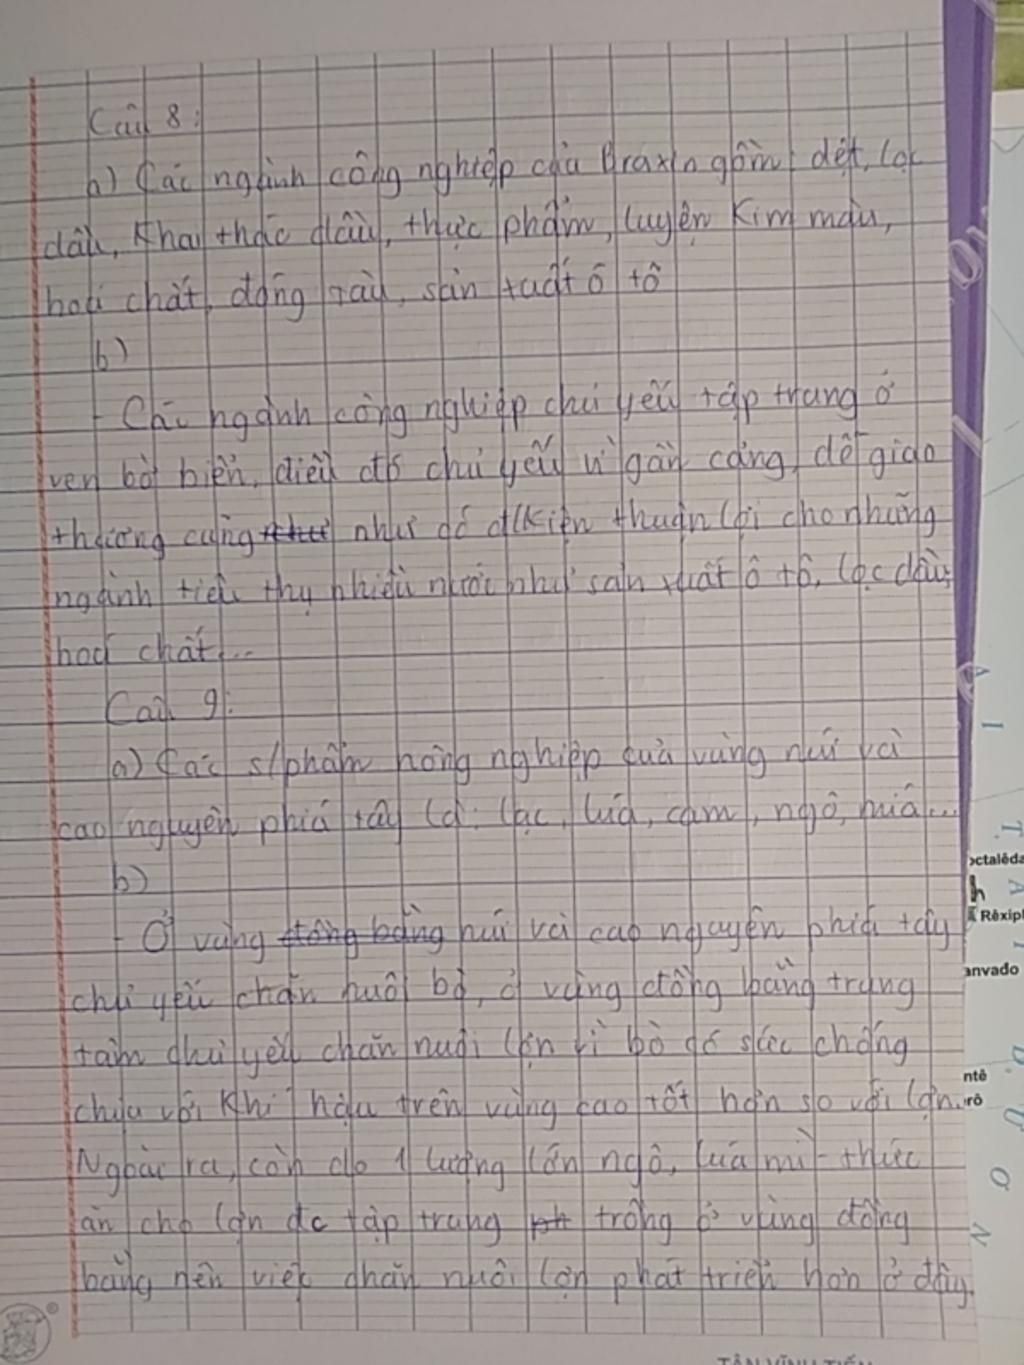 Câu 8:
a) Các ngành công nghiệp của Braxin gồm: dệt, lọc
dầu, khai thác dầu, thực phẩm, luyện kim màu,
hoá chất, đóng tàu, sản xuất ô tô
b)
- Các ngành công nghiệp chủ yếu tập trung ở
ven bờ biển, điều đó chủ yếu vì gần cảng, dễ giao
thương cũng như có đ/kiện thuận lợi cho những
ngành tiêu thụ nhiều nước như sản xuất ô tô, lọc dầu,
hoá chất...
Câu 9:
a) Các s/phẩm nông nghiệp của vùng núi và
cao nguyên phía tây là: lạc, lúa, cam, ngô, mía...
b)
- Ở vùng đồng bằng núi và cao nguyên phía tây
chủ yếu chăn nuôi bò, ở vùng đồng bằng trung
tâm chủ yếu chăn nuôi lợn vì bò có sức chống
chịu với khí hậu trên vùng cao tốt hơn so với lợn.
Ngoài ra, còn do 1 lượng lớn ngô, lúa mì - thức
ăn cho lợn đc tập trung trồng ở vùng đồng
bằng nên việc chăn nuôi lợn phát triển hơn ở đây.
A
I
T.
A
I
D.
Ư
Ơ
N
octalêda
h
Rêxiph
anvado
ntê
rô
TÂN VĨNH TIẾN